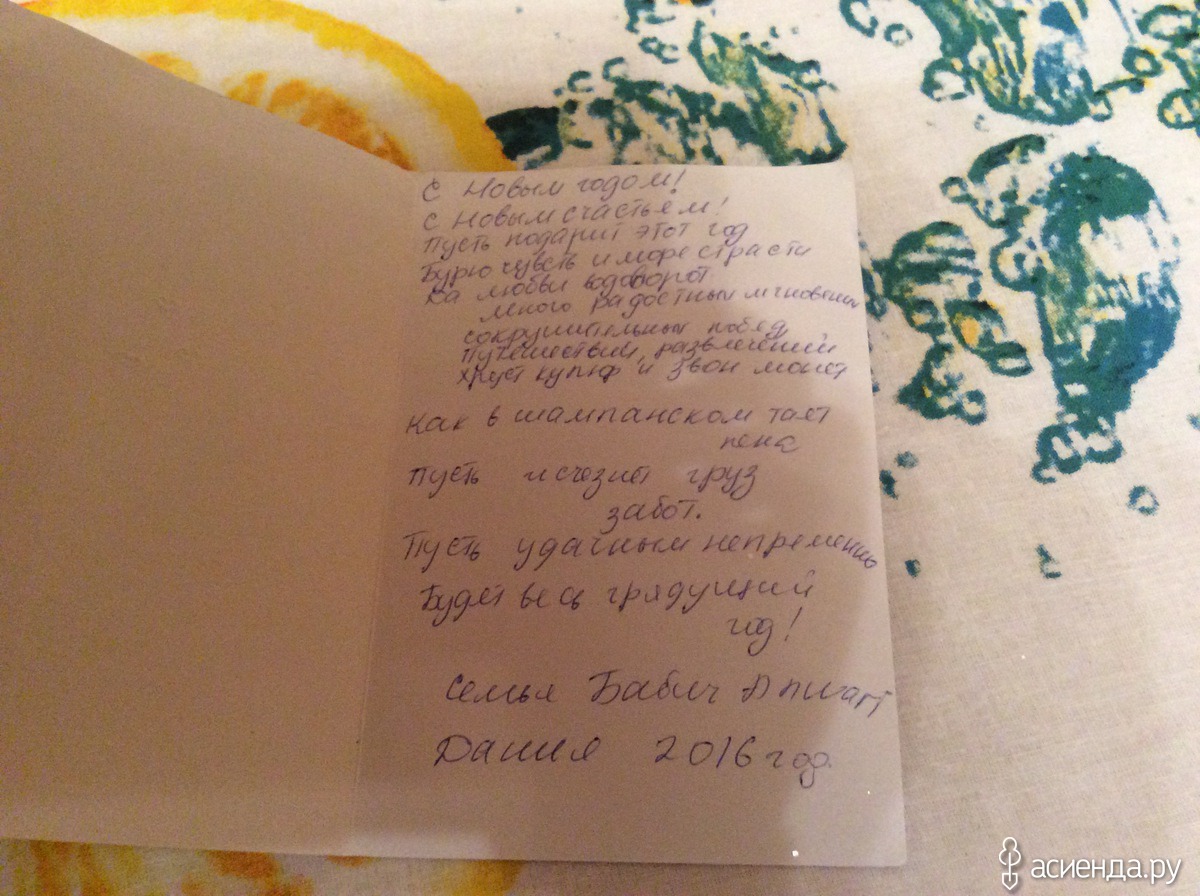 С Новым годом!
С Новым счастьем!
Пусть подарит этот год
Бурю чувств и море страсти
Да любви водоворот.
много радостных мгновений
сокрушительных побед,
Путешествий, развлечений
Хруст купюр и звон монет
Как в шампанском тает
пена
Пусть исчезнет груз
забот.
Пусть удачным непременно
Будет весь грядущий
год!
Семья Бабич
Дания 2016 год.
асиенда.ру